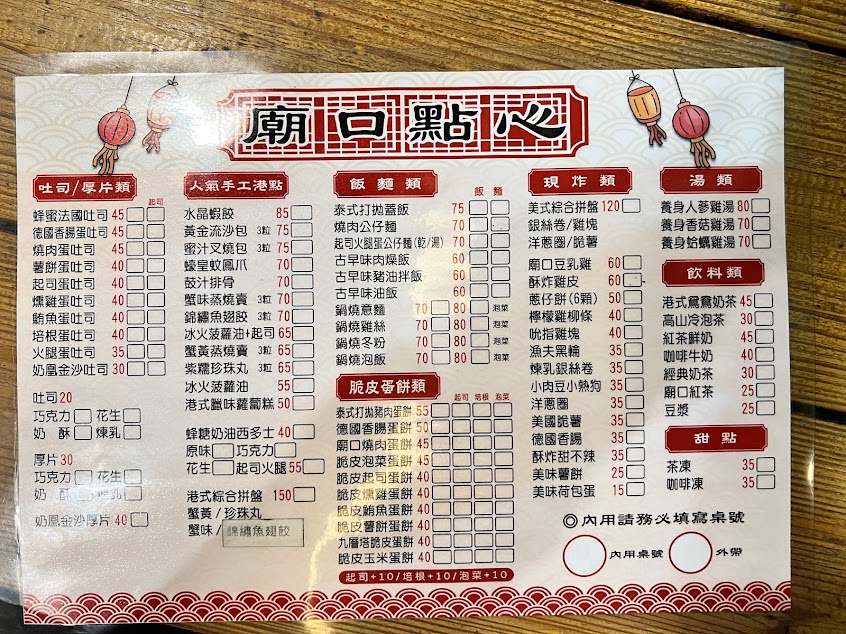 廟口點心
吐司/厚片類
起司
蜂蜜法國吐司 45
德國香腸蛋吐司 45
燒肉蛋吐司 45
薯餅蛋吐司 40
起司蛋吐司 40
燻雞蛋吐司 40
鮪魚蛋吐司 40
培根蛋吐司 40
火腿蛋吐司 35
奶凰金沙吐司 30
吐司20
巧克力 花生
奶 酥 煉乳
厚片30
巧克力 花生
奶 酥 煉乳
奶凰金沙厚片 40
人氣手工港點
水晶蝦餃 85
黃金流沙包 3粒 75
蜜汁叉燒包 3粒 75
蠔皇蚊鳳爪 70
豉汁排骨 70
蟹味蒸燒賣 3粒 70
錦繡魚翅餃 3粒 70
冰火菠蘿油+起司 65
蟹黃蒸燒賣 3粒 65
紫糯珍珠丸 3粒 65
冰火菠蘿油 55
港式臘味蘿蔔糕 50
蜂糖奶油西多士 40
原味 巧克力
花生 起司火腿 55
港式綜合拼盤 150
蟹黃/珍珠丸
蟹味/錦繡魚翅餃
飯麵類
飯 麵
泰式打拋蓋飯 75
燒肉公仔麵 70
起司火腿蛋公仔麵(乾/湯) 70
古早味肉燥飯 60
古早味豬油拌飯 60
古早味油飯 60
鍋燒意麵 70 80 泡菜
鍋燒雞絲 70 80 泡菜
鍋燒冬粉 70 80 泡菜
鍋燒泡飯 70 80 泡菜
脆皮蛋餅類
起司 培根 泡菜
泰式打拋豬肉蛋餅 55
德國香腸蛋餅 50
廟口燒肉蛋餅 45
脆皮泡菜蛋餅 45
脆皮起司蛋餅 40
脆皮燻雞蛋餅 40
脆皮鮪魚蛋餅 40
脆皮薯餅蛋餅 40
九層塔脆皮蛋餅 40
脆皮玉米蛋餅 40
起司+10/培根+10/泡菜+10
現炸類
美式綜合拼盤 120
銀絲卷/雞塊
洋蔥圈/脆薯
廟口豆乳雞 60
酥炸雞皮 60
蔥仔餅(6顆) 50
檸檬雞柳條 40
吮指雞塊 40
漁夫黑輪 35
煉乳銀絲卷 35
小肉豆小熱狗 35
洋蔥圈 35
美國脆薯 35
德國香腸 35
酥炸甜不辣 35
美味薯餅 25
美味荷包蛋 15
湯類
養身人蔘雞湯 80
養身香菇雞湯 70
養身蛤蠣雞湯 70
飲料類
港式鴛鴦奶茶 45
高山冷泡茶 30
紅茶鮮奶 45
咖啡牛奶 40
經典奶茶 30
廟口紅茶 25
豆漿 25
甜點
茶凍 35
咖啡凍 35
◎內用請務必填寫桌號
內用桌號 外帶